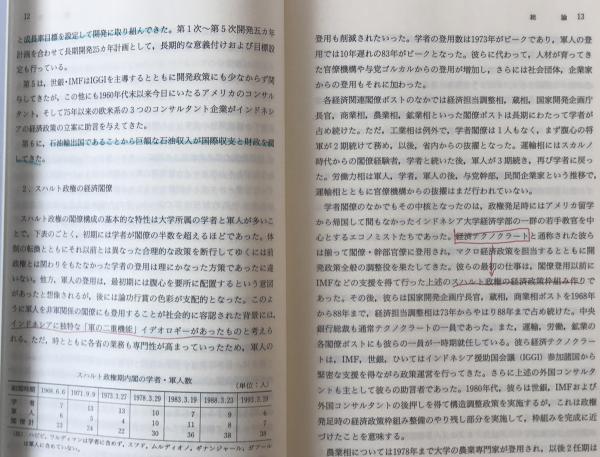 12
と成長率目標を設定して開発に取り組んできた。第1次〜第5次開発五カ年
計画を合わせて長期開発25カ年計画として、長期的な意義付けおよび目標設
定も行っている。
第5は、世銀・IMFはIGGIを主導するとともに開発政策にも少なからず関
与してきたが、この他にも1960年代末以来今日にいたるアメリカのコンサル
タント、そして75年以来の欧米系の3つのコンサルタント企業がインドネシ
アの経済政策の立案に助言を与えてきた。
第6に、石油輸出国であることから巨額な石油収入が国際収支と財政を潤
してきた。
2.スハルト政権の経済閣僚
スハルト政権の閣僚構成の基本的な特性は大学所属の学者と軍人が多いこ
とで、下表のごとく、初期には学者が閣僚の半数を超えるほどであった。体
制の転換とともにそれ以前とは異なった合理的な政策を断行してゆくには前
政権とは関わりをもたなかった学者の登用は理にかなった方策であったに違
いない。他方、軍人の登用は、最初期には腹心を要所に配置するという意図
があったと想像されるが、後には論功行賞の色彩が支配的となった。このよ
うに軍人を非軍事関係の閣僚にも登用することが社会的に容認された背景には、
インドネシアに独特な「軍の二重機能」イデオロギーがあったものと考えら
れる。ただ、時とともに各省の業務も専門性が高まっていったため、軍人の
スハルト政権期内閣の学者・軍人数
(単位:人)
組閣時期 1968.6.6 1971.9.9 1973.3.27 1978.3.29 1983.3.19 1988.3.23 1993.3.19
学者 7 13 13 10 7 9
軍人 6 5 4 10 11 8 7
閣僚計 23 24 22 30 36 38 38
総論 13
登用も削減されたいった。学者の登用数は1973年がピークであり、軍人の登
用では10年遅れの83年がピークとなった。彼らに代わって、人材が育ってき
た官僚機構や与党ゴルカルからの登用が増加し、さらには社会団体、企業家
からの登用もそれに加わった。
各経済関連閣僚ポストのなかでは経済担当調整相、蔵相、国家開発企画庁
長官、商業相、農業相、鉱業相といった閣僚ポストは長期にわたって学者が
占め続けた。ただ、工業相は例外で、学者閣僚は1人もなく、まず腹心の将
軍が2期続けて務め、以後、省内からの抜擢となった。運輸相にはスカルノ
時代からの閣僚経験者、学者と続いた後、軍人が3期続き、再び学者に戻っ
た。労働力相は軍人、学者、軍人の後、与党幹部、民間企業家という推移で、
運輸相とともに官僚機構からの抜擢はまだ行われていない。
学者閣僚のなかでもその中核となったのは、政権発足時にはアメリカ留学
から帰国して間もなかったインドネシア大学経済学部の一群の若手教官を中
心とするエコノミストたちであった。経済テクノクラートと通称された彼ら
は揃って閣僚・幹部官僚に登用され、マクロ経済政策を担当するとともに開
発政策全般の調整役を果たしてきた。彼らの最初の仕事は、閣僚登用以前に
IMFなどの支援を得て行った上述のスハルト政権の経済政策枠組み作りで
あった。その後、彼らは国家開発企画庁長官、蔵相、商業相ポストを1968年
から88年まで、経済担当調整相は73年からやはり88年まで占め続けた。中央
銀行総裁も通常テクノクラートの一員であった。また、運輸、労働、鉱業の
各閣僚ポストにも彼らの一員が一時期就任している。彼ら経済テクノクラー
トは、IMF、世銀、ひいてはインドネシア援助国会議(IGGI)参加諸国から
緊密な支援を得ながら政策運営を行ってきた。さらに上述の外国コンサルタ
ントも主として彼らの助言者であった。1980年代、彼らは世銀、IMFおよび
外国コンサルタントの後押しを得て構造調整政策を実施するが、これは政権
発足時の経済政策枠組み整備のやり残し部分を実施して、枠組みを完成に近
づけたことを意味する。
農業相については1978年まで大学の農業専門家が登用され、以後2任期は